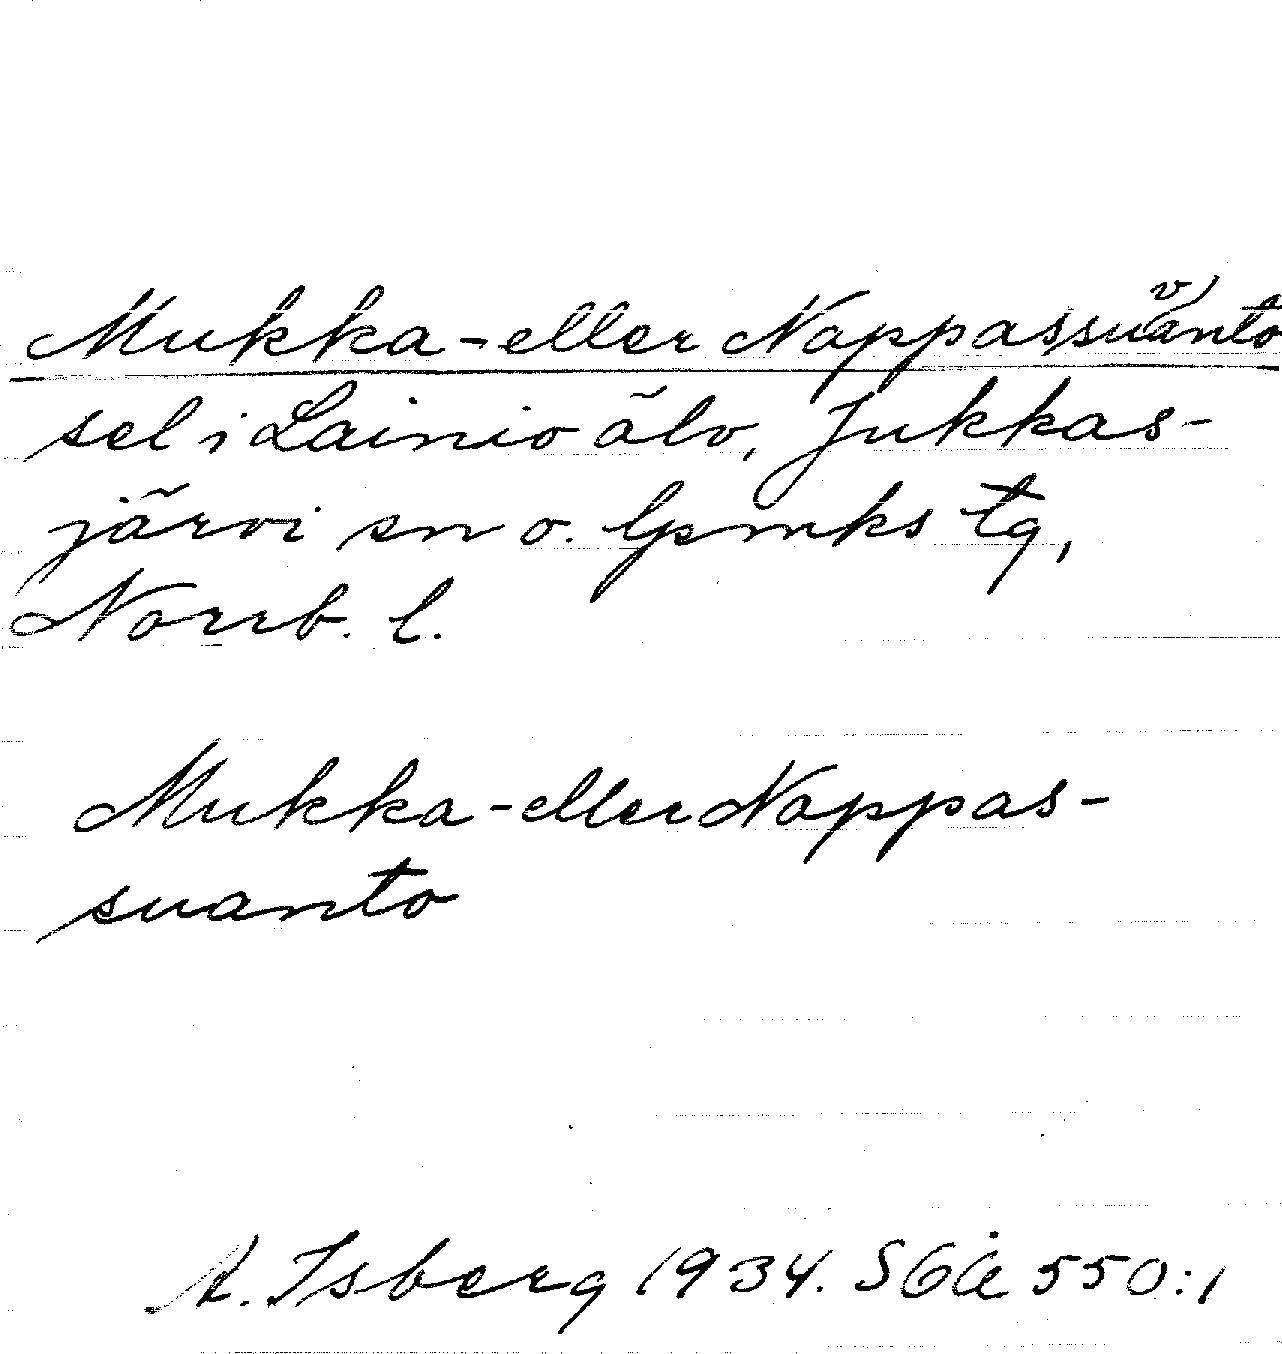 Mukka- eller Nappassu(v)anto
sel i Lainio älv, Jukkas-
järvi sn o. lpmks tg,
Norrb. l.
Mukka- eller Nappas-
suanto
A. Isberg 1934. SGÅ 550:1